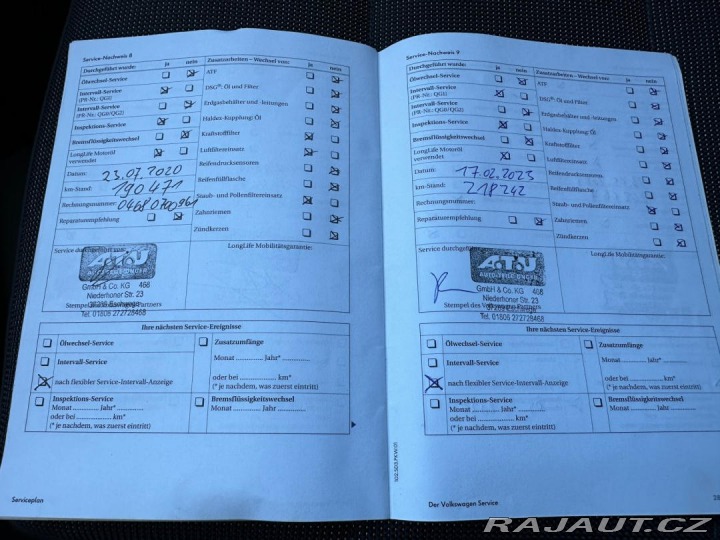 Service-Nachweis 8
Durchgeführt wurde: ja nein
Ölwechsel-Service
Intervall-Service
(PR-Nr.: QG1)
Intervall-Service
(PR-Nr.: QG0/QG2)
Inspektions-Service
Bremsflüssigkeitswechsel
LongLife Motoröl
verwendet
Datum: 23.07.2020
km-Stand: 190 471
Rechnungsnummer:
Reparaturempfehlung
Zusatzarbeiten – Wechsel von: ja nein
ATF
DSG®: Öl und Filter
Erdgasbehälter und -leitungen
Haldex-Kupplung: Öl
Kraftstofffilter
Luftfiltereinsatz
Reifendrucksensoren
Reifenfüllflasche
Staub- und Pollenfiltereinsatz
Zahnriemen
Zündkerzen
Service durchgeführt von:
LongLife Mobilitätsgarantie:
A.T.U
AUTO-TEILE-UNGER
GmbH & Co. KG 468
Niederhoner Str. 23
Stempel des Volkswagen Partners
Tel. 01806 272728468
Ihre nächsten Service-Ereignisse
Ölwechsel-Service
Intervall-Service
nach flexibler Service-Intervall-Anzeige
Inspektions-Service
Monat .......... Jahr* ..........
oder bei .......... km*
(* je nachdem, was zuerst eintritt)
Zusatzumfänge
Monat .......... Jahr* ..........
oder bei .......... km*
(* je nachdem, was zuerst eintritt)
Bremsflüssigkeitswechsel
Monat .......... Jahr ..........
Serviceplan
Service-Nachweis 9
Durchgeführt wurde: ja nein
Ölwechsel-Service
Intervall-Service
(PR-Nr.: QG1)
Intervall-Service
(PR-Nr.: QG0/QG2)
Inspektions-Service
Bremsflüssigkeitswechsel
LongLife Motoröl
verwendet
Datum: 17.02.2023
km-Stand: 218 242
Rechnungsnummer:
Reparaturempfehlung
Zusatzarbeiten – Wechsel von: ja nein
ATF
DSG®: Öl und Filter
Erdgasbehälter und -leitungen
Haldex-Kupplung: Öl
Kraftstofffilter
Luftfiltereinsatz
Reifendrucksensoren
Reifenfüllflasche
Staub- und Pollenfiltereinsatz
Zahnriemen
Zündkerzen
Service durchgeführt von:
LongLife Mobilitätsgarantie:
A.T.U
AUTO-TEILE-UNGER
GmbH & Co. KG 468
Niederhoner Str. 23
Stempel des Volkswagen Partners
Tel. 01806 272728468
Ihre nächsten Service-Ereignisse
Ölwechsel-Service
Intervall-Service
nach flexibler Service-Intervall-Anzeige
Inspektions-Service
Monat .......... Jahr* ..........
oder bei .......... km*
(* je nachdem, was zuerst eintritt)
Zusatzumfänge
Monat .......... Jahr* ..........
oder bei .......... km*
(* je nachdem, was zuerst eintritt)
Bremsflüssigkeitswechsel
Monat .......... Jahr ..........
Der Volkswagen Service
RAJAUT.CZ